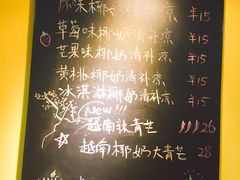 原味椰奶清补凉 ¥15
草莓味椰奶清补凉 ¥15
芒果味椰奶清补凉 ¥15
黄桃椰奶清补凉 ¥15
冰淇淋椰奶清补凉 ¥15
New!!!
越南 青芒 26
越南椰奶大青芒 28